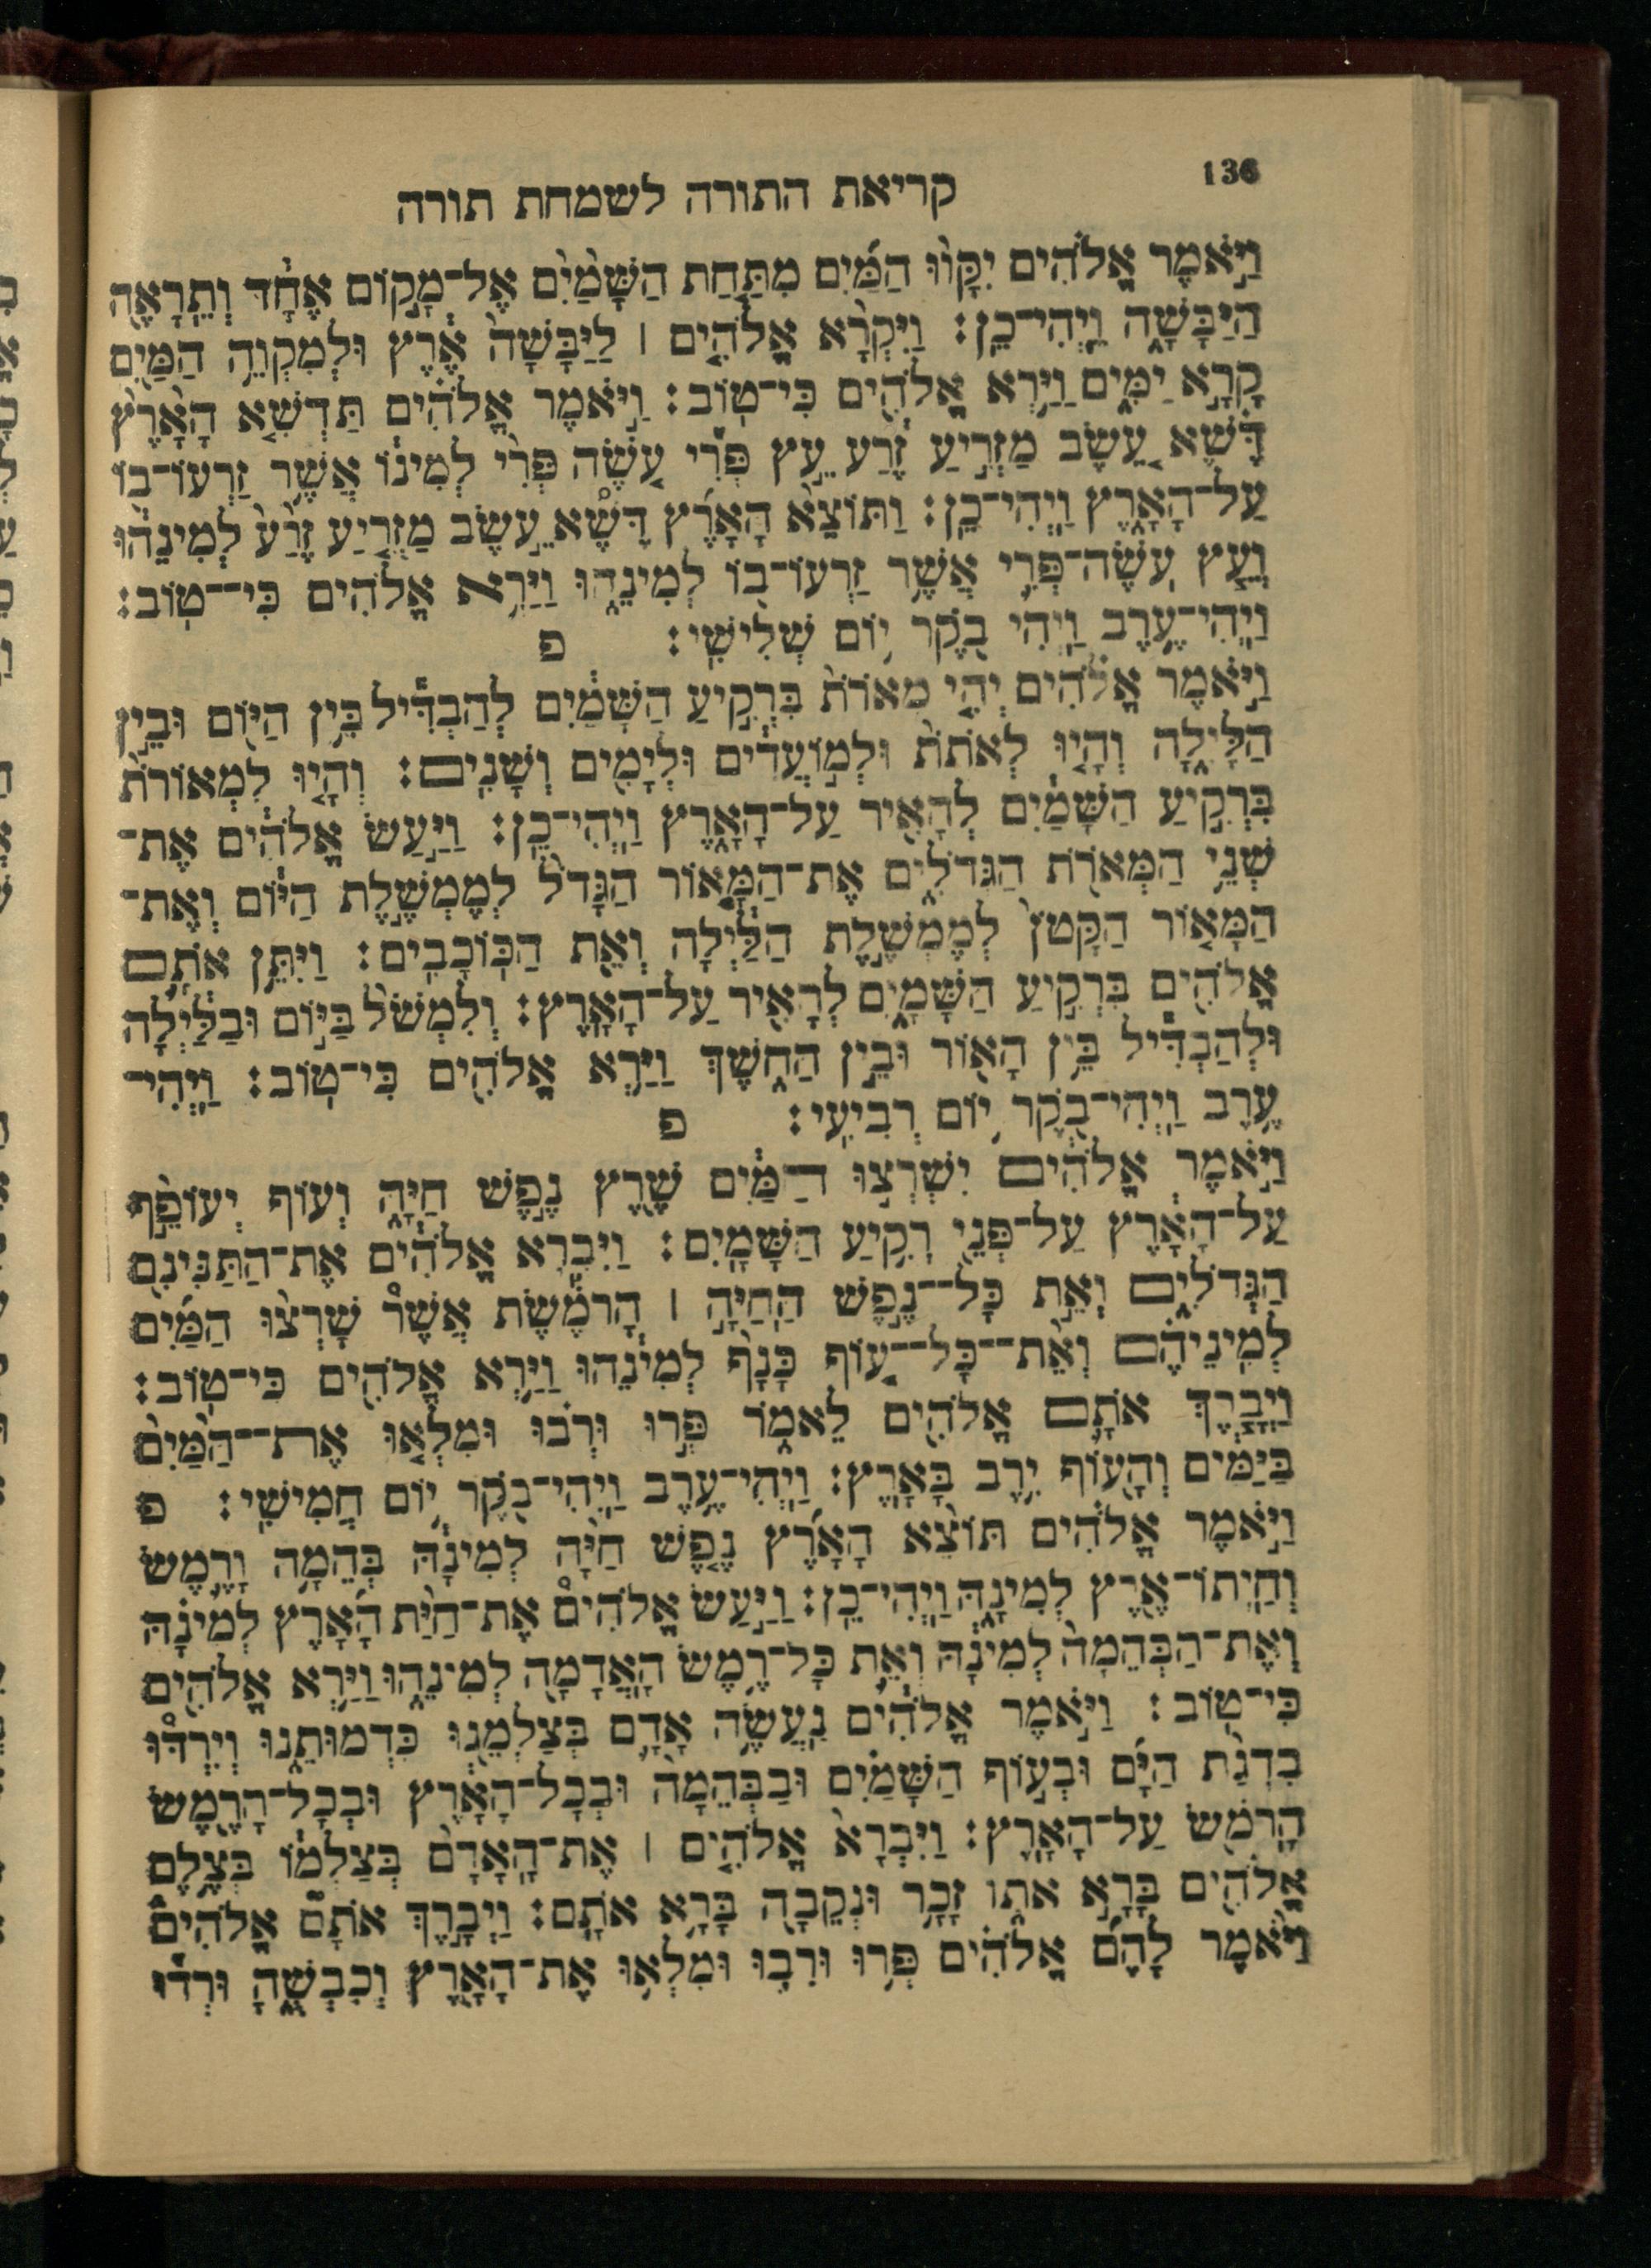 136
קריאת התורה לשמחת תורה
וַיֹּ֣אמֶר אֱלֹהִ֗ים יִקָּו֨וּ הַמַּ֜יִם מִתַּ֤חַת הַשָּׁמַ֙יִם֙ אֶל־מָק֣וֹם אֶחָ֔ד וְתֵרָאֶ֖ה
הַיַּבָּשָׁ֑ה וַֽיְהִי־כֵֽן׃ וַיִּקְרָ֨א אֱלֹהִ֤ים ׀ לַיַּבָּשָׁה֙ אֶ֔רֶץ וּלְמִקְוֵ֥ה הַמַּ֖יִם
קָרָ֣א יַמִּ֑ים וַיַּ֥רְא אֱלֹהִ֖ים כִּי־טֽוֹב׃ וַיֹּ֣אמֶר אֱלֹהִ֗ים תַּֽדְשֵׁ֤א הָאָ֙רֶץ֙
דֶּ֔שֶׁא עֵ֚שֶׂב מַזְרִ֣יעַ זֶ֔רַע עֵ֣ץ פְּרִ֞י עֹ֤שֶׂה פְּרִי֙ לְמִינ֔וֹ אֲשֶׁ֥ר זַרְעוֹ־ב֖וֹ
עַל־הָאָ֑רֶץ וַֽיְהִי־כֵֽן׃ וַתּוֹצֵ֨א הָאָ֜רֶץ דֶּ֠שֶׁא עֵ֣שֶׂב מַזְרִ֤יעַ זֶ֙רַע֙ לְמִינֵ֔הוּ
וְעֵ֧ץ עֹֽשֶׂה־פְּרִ֛י אֲשֶׁ֥ר זַרְעוֹ־ב֖וֹ לְמִינֵ֑הוּ וַיַּ֥רְא אֱלֹהִ֖ים כִּי־טֽוֹב׃
וַֽיְהִי־עֶ֥רֶב וַֽיְהִי בֹ֖קֶר י֥וֹם שְׁלִישִֽׁי׃ פ
וַיֹּ֣אמֶר אֱלֹהִ֗ים יְהִ֤י מְאֹרֹת֙ בִּרְקִ֣יעַ הַשָּׁמַ֔יִם לְהַבְדִּ֕יל בֵּ֥ין הַיּ֖וֹם וּבֵ֣ין
הַלָּ֑יְלָה וְהָי֤וּ לְאֹתֹת֙ וּלְמ֣וֹעֲדִ֔ים וּלְיָמִ֖ים וְשָׁנִֽים׃ וְהָי֤וּ לִמְאוֹרֹת֙
בִּרְקִ֣יעַ הַשָּׁמַ֔יִם לְהָאִ֖יר עַל־הָאָ֑רֶץ וַֽיְהִי־כֵֽן׃ וַיַּ֣עַשׂ אֱלֹהִ֔ים אֶת־
שְׁנֵ֥י הַמְּאֹרֹ֖ת הַגְּדֹלִ֑ים אֶת־הַמָּא֤וֹר הַגָּדֹל֙ לְמֶמְשֶׁ֣לֶת הַיּ֔וֹם וְאֶת־
הַמָּא֤וֹר הַקָּטֹן֙ לְמֶמְשֶׁ֣לֶת הַלַּ֔יְלָה וְאֵ֖ת הַכּֽוֹכָבִֽים׃ וַיִּתֵּ֥ן אֹתָ֛ם
אֱלֹהִ֖ים בִּרְקִ֣יעַ הַשָּׁמָ֑יִם לְהָאִ֖יר עַל־הָאָֽרֶץ׃ וְלִמְשֹׁל֙ בַּיּ֣וֹם וּבַלַּ֔יְלָה
וּֽלְהַבְדִּ֔יל בֵּ֥ין הָא֖וֹר וּבֵ֣ין הַחֹ֑שֶׁךְ וַיַּ֥רְא אֱלֹהִ֖ים כִּי־טֽוֹב׃ וַֽיְהִי־
עֶ֥רֶב וַֽיְהִי־בֹ֖קֶר י֥וֹם רְבִיעִֽי׃ פ
וַיֹּ֣אמֶר אֱלֹהִ֔ים יִשְׁרְצ֣וּ הַמַּ֔יִם שֶׁ֖רֶץ נֶ֣פֶשׁ חַיָּ֑ה וְעוֹף יְעוֹפֵ֣ף
עַל־הָאָ֔רֶץ עַל־פְּנֵ֖י רְקִ֥יעַ הַשָּׁמָֽיִם׃ וַיִּבְרָ֣א אֱלֹהִ֔ים אֶת־הַתַּנִּינִ֖ם
הַגְּדֹלִ֑ים וְאֵ֣ת כָּל־נֶ֣פֶשׁ הַֽחַיָּ֣ה ׀ הָֽרֹמֶ֡שֶׂת אֲשֶׁר֩ שָׁרְצ֨וּ הַמַּ֜יִם
לְמִֽינֵיהֶ֗ם וְאֵ֨ת־כָּל־ע֤וֹף כָּנָף֙ לְמִינֵ֔הוּ וַיַּ֥רְא אֱלֹהִ֖ים כִּי־טֽוֹב׃
וַיְבָ֧רֶךְ אֹתָ֛ם אֱלֹהִ֖ים לֵאמֹ֑ר פְּר֣וּ וּרְב֗וּ וּמִלְא֤וּ אֶת־הַמַּ֙יִם֙
בַּיַּמִּ֔ים וְהָע֖וֹף יִ֥רֶב בָּאָֽרֶץ׃ וַֽיְהִי־עֶ֥רֶב וַֽיְהִי־בֹ֖קֶר י֥וֹם חֲמִישִֽׁי׃ פ
וַיֹּ֣אמֶר אֱלֹהִ֗ים תּוֹצֵ֨א הָאָ֜רֶץ נֶ֤פֶשׁ חַיָּה֙ לְמִינָ֔הּ בְּהֵמָ֥ה וָרֶ֛מֶשׂ
וְחַֽיְתוֹ־אֶ֖רֶץ לְמִינָ֑הּ וַֽיְהִי־כֵֽן׃ וַיַּ֣עַשׂ אֱלֹהִים֩ אֶת־חַיַּ֨ת הָאָ֜רֶץ לְמִינָ֗הּ
וְאֶת־הַבְּהֵמָה֙ לְמִינָ֔הּ וְאֵ֛ת כָּל־רֶ֥מֶשׂ הָֽאֲדָמָ֖ה לְמִינֵ֑הוּ וַיַּ֥רְא אֱלֹהִ֖ים
כִּי־טֽוֹב׃ וַיֹּ֣אמֶר אֱלֹהִ֔ים נַֽעֲשֶׂ֥ה אָדָ֛ם בְּצַלְמֵ֖נוּ כִּדְמוּתֵ֑נוּ וְיִרְדּוּ֩
בִדְגַ֨ת הַיָּ֜ם וּבְע֣וֹף הַשָּׁמַ֗יִם וּבַבְּהֵמָה֙ וּבְכָל־הָאָ֔רֶץ וּבְכָל־הָרֶ֖מֶשׂ
הָֽרֹמֵ֥שׂ עַל־הָאָֽרֶץ׃ וַיִּבְרָ֨א אֱלֹהִ֤ים ׀ אֶת־הָֽאָדָם֙ בְּצַלְמ֔וֹ בְּצֶ֥לֶם
אֱלֹהִ֖ים בָּרָ֣א אֹת֑וֹ זָכָ֥ר וּנְקֵבָ֖ה בָּרָ֥א אֹתָֽם׃ וַיְבָ֣רֶךְ אֹתָם֮ אֱלֹהִים֒
וַיֹּ֨אמֶר לָהֶ֜ם אֱלֹהִ֗ים פְּר֥וּ וּרְב֛וּ וּמִלְא֥וּ אֶת־הָאָ֖רֶץ וְכִבְשֻׁ֑הָ וּרְד֞וּ